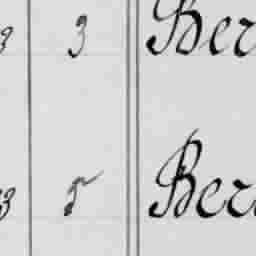 3 3 Ber
3 5 Ber